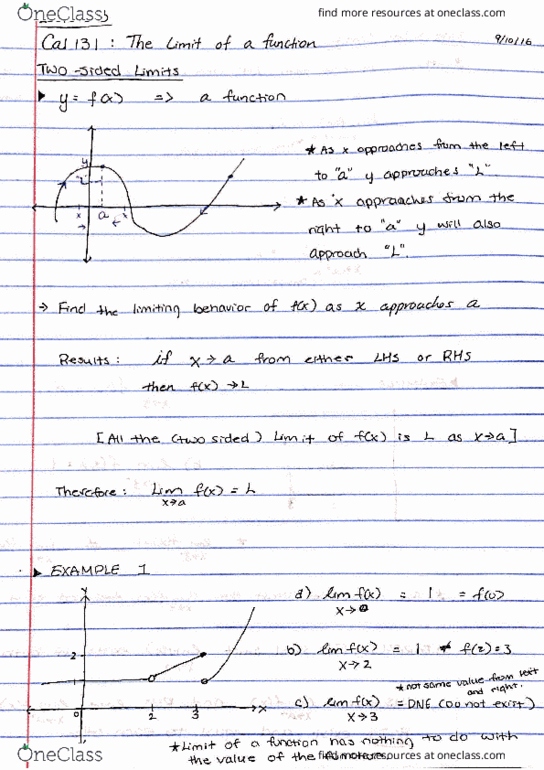 OneClass
find more resources at oneclass.com
Cal 131 : The Limit of a function
9/10/16
TWO-sided Limits
y = f(x) => a function
y
"L"
x a x
* As x approaches from the left
to "a" y approaches "L".
* As x approaches from the
right to "a" y will also
approach "L".
→ Find the limiting behavior of f(x) as x approaches a
Results : if x→a from either LHS or RHS
then f(x) → L
[All the (two sided) Limit of f(x) is L as x→a]
Therefore : Lim f(x) = L
x→a
EXAMPLE 1
y
2
1
0 2 3 x
a) lim f(x) = 1 = f(0)
x→0
b) lim f(x) = 1 ≠ f(2)=3
x→2
* not same value from left
and right.
c) lim f(x) = DNE (Do not exist)
x→3
* Limit of a function has nothing to do with
the value of the
OneClass
find more resources at oneclass.com